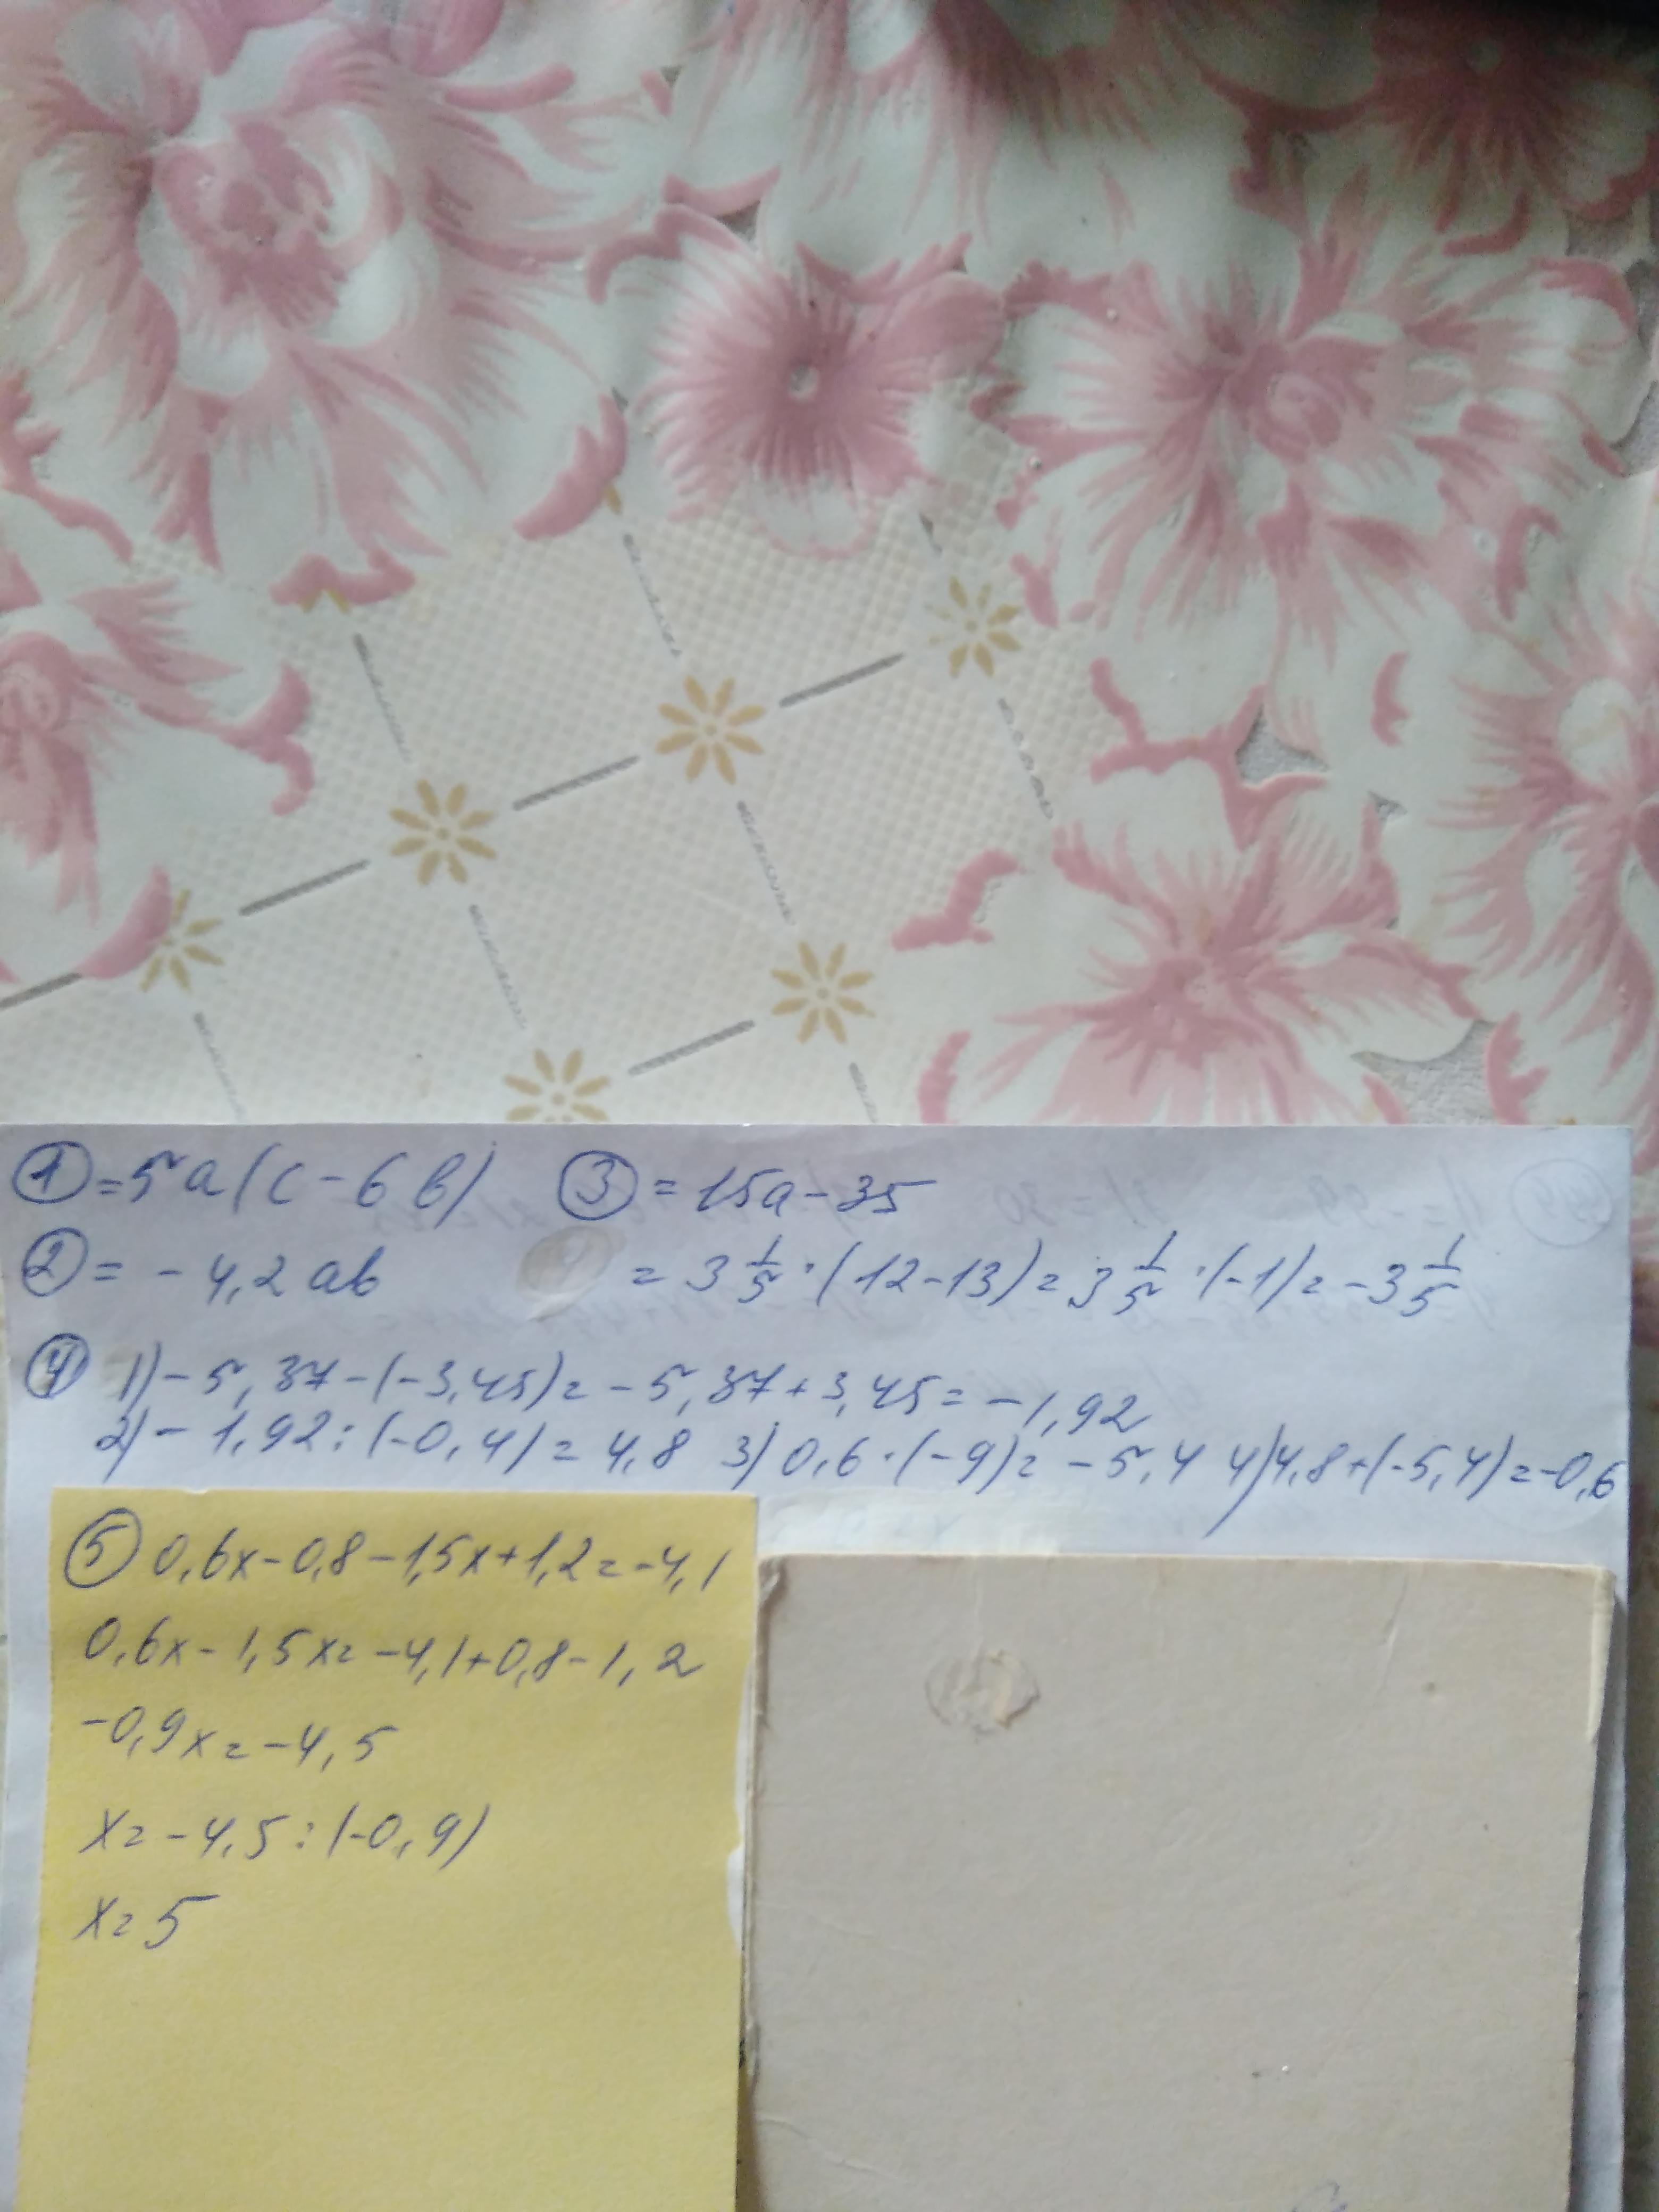 ① = 5a(c - 6b) ③ = 15a - 35
② = - 4,2 ab = 3 1/5 · (12 - 13) = 3 1/5 · (-1) = - 3 1/5
④ 1) - 5,37 - (-3,45) = - 5,37 + 3,45 = - 1,92
2) - 1,92 : (-0,4) = 4,8 3) 0,6 · (-9) = - 5,4 4) 4,8 + (-5,4) = -0,6
⑤ 0,6x - 0,8 - 1,5x + 1,2 = -4,1
0,6x - 1,5x = -4,1 + 0,8 - 1,2
-0,9x = -4,5
x = -4,5 : (-0,9)
x = 5